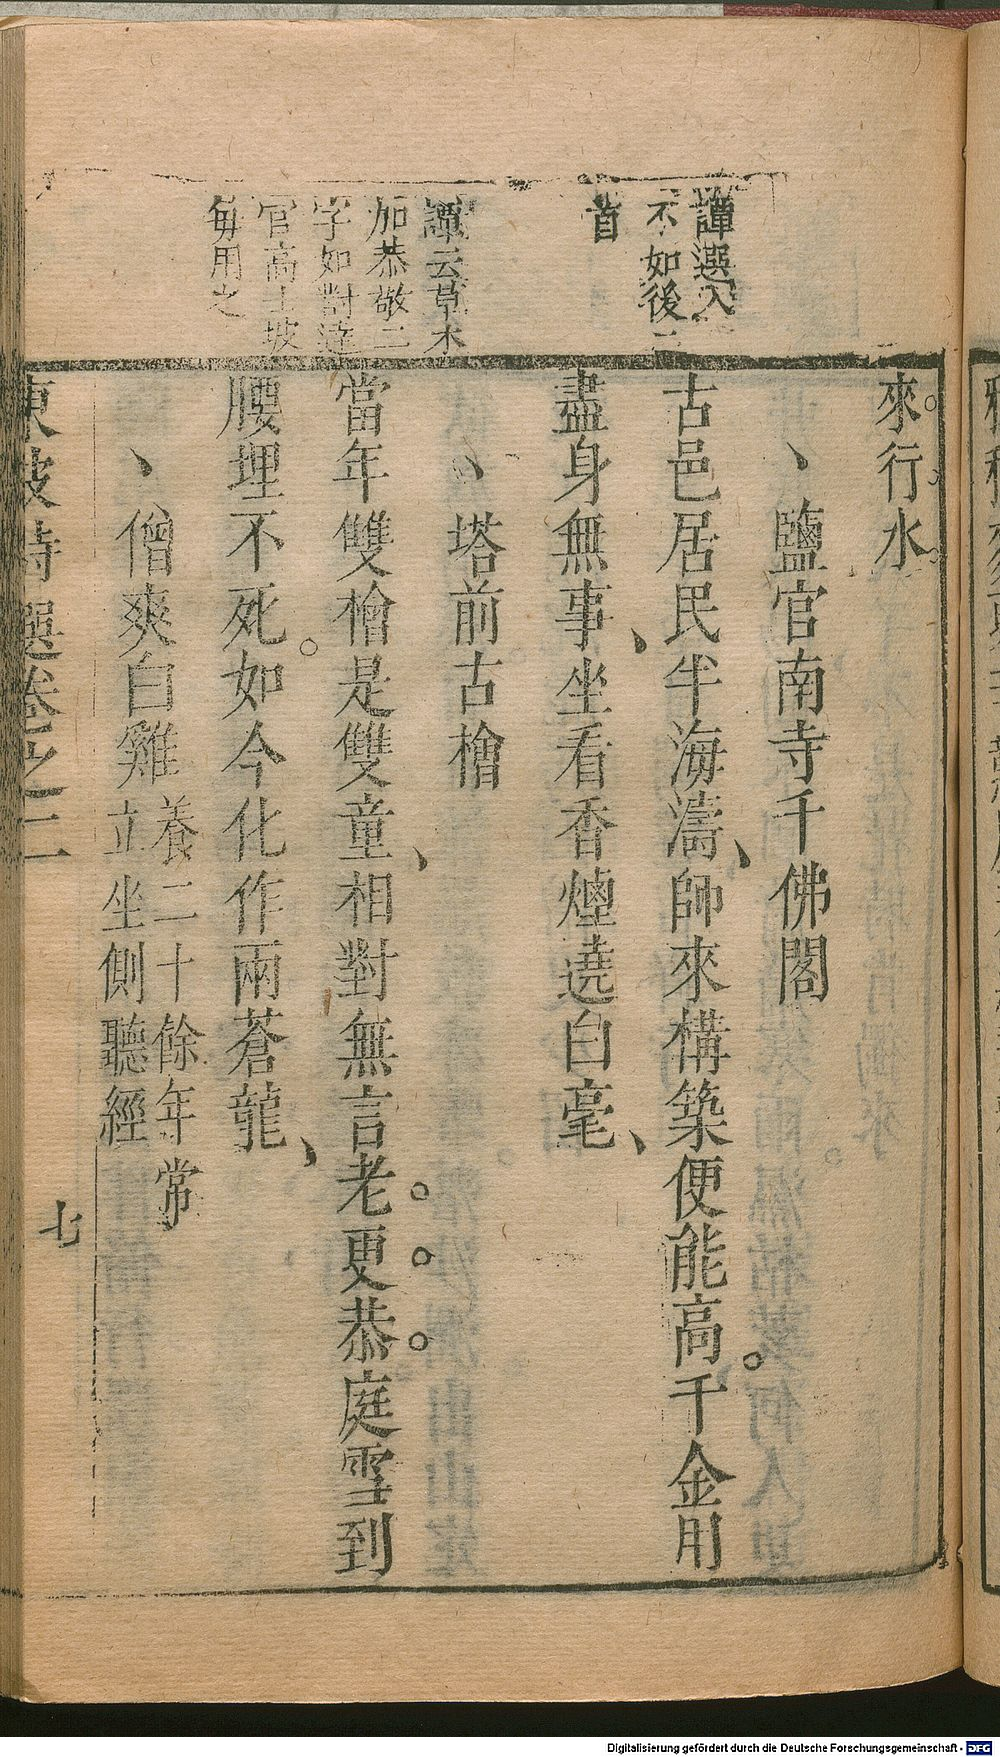 譚選入
不如後二
首
譚云草木
加恭敬二
字如對達
官高士坡
每用之
來行水
鹽官南寺千佛閣
古邑居民半海濤師來構築便能高千金用
盡身無事坐看香煙遶白毫
塔前古檜
當年雙檜是雙童相對無言老更恭庭雪到
腰埋不死如今化作兩蒼龍
僧爽白雞養二十餘年常
立坐側聽經
東坡詩選卷之二
七
Digitalisierung gefördert durch die Deutsche Forschungsgemeinschaft - DFG